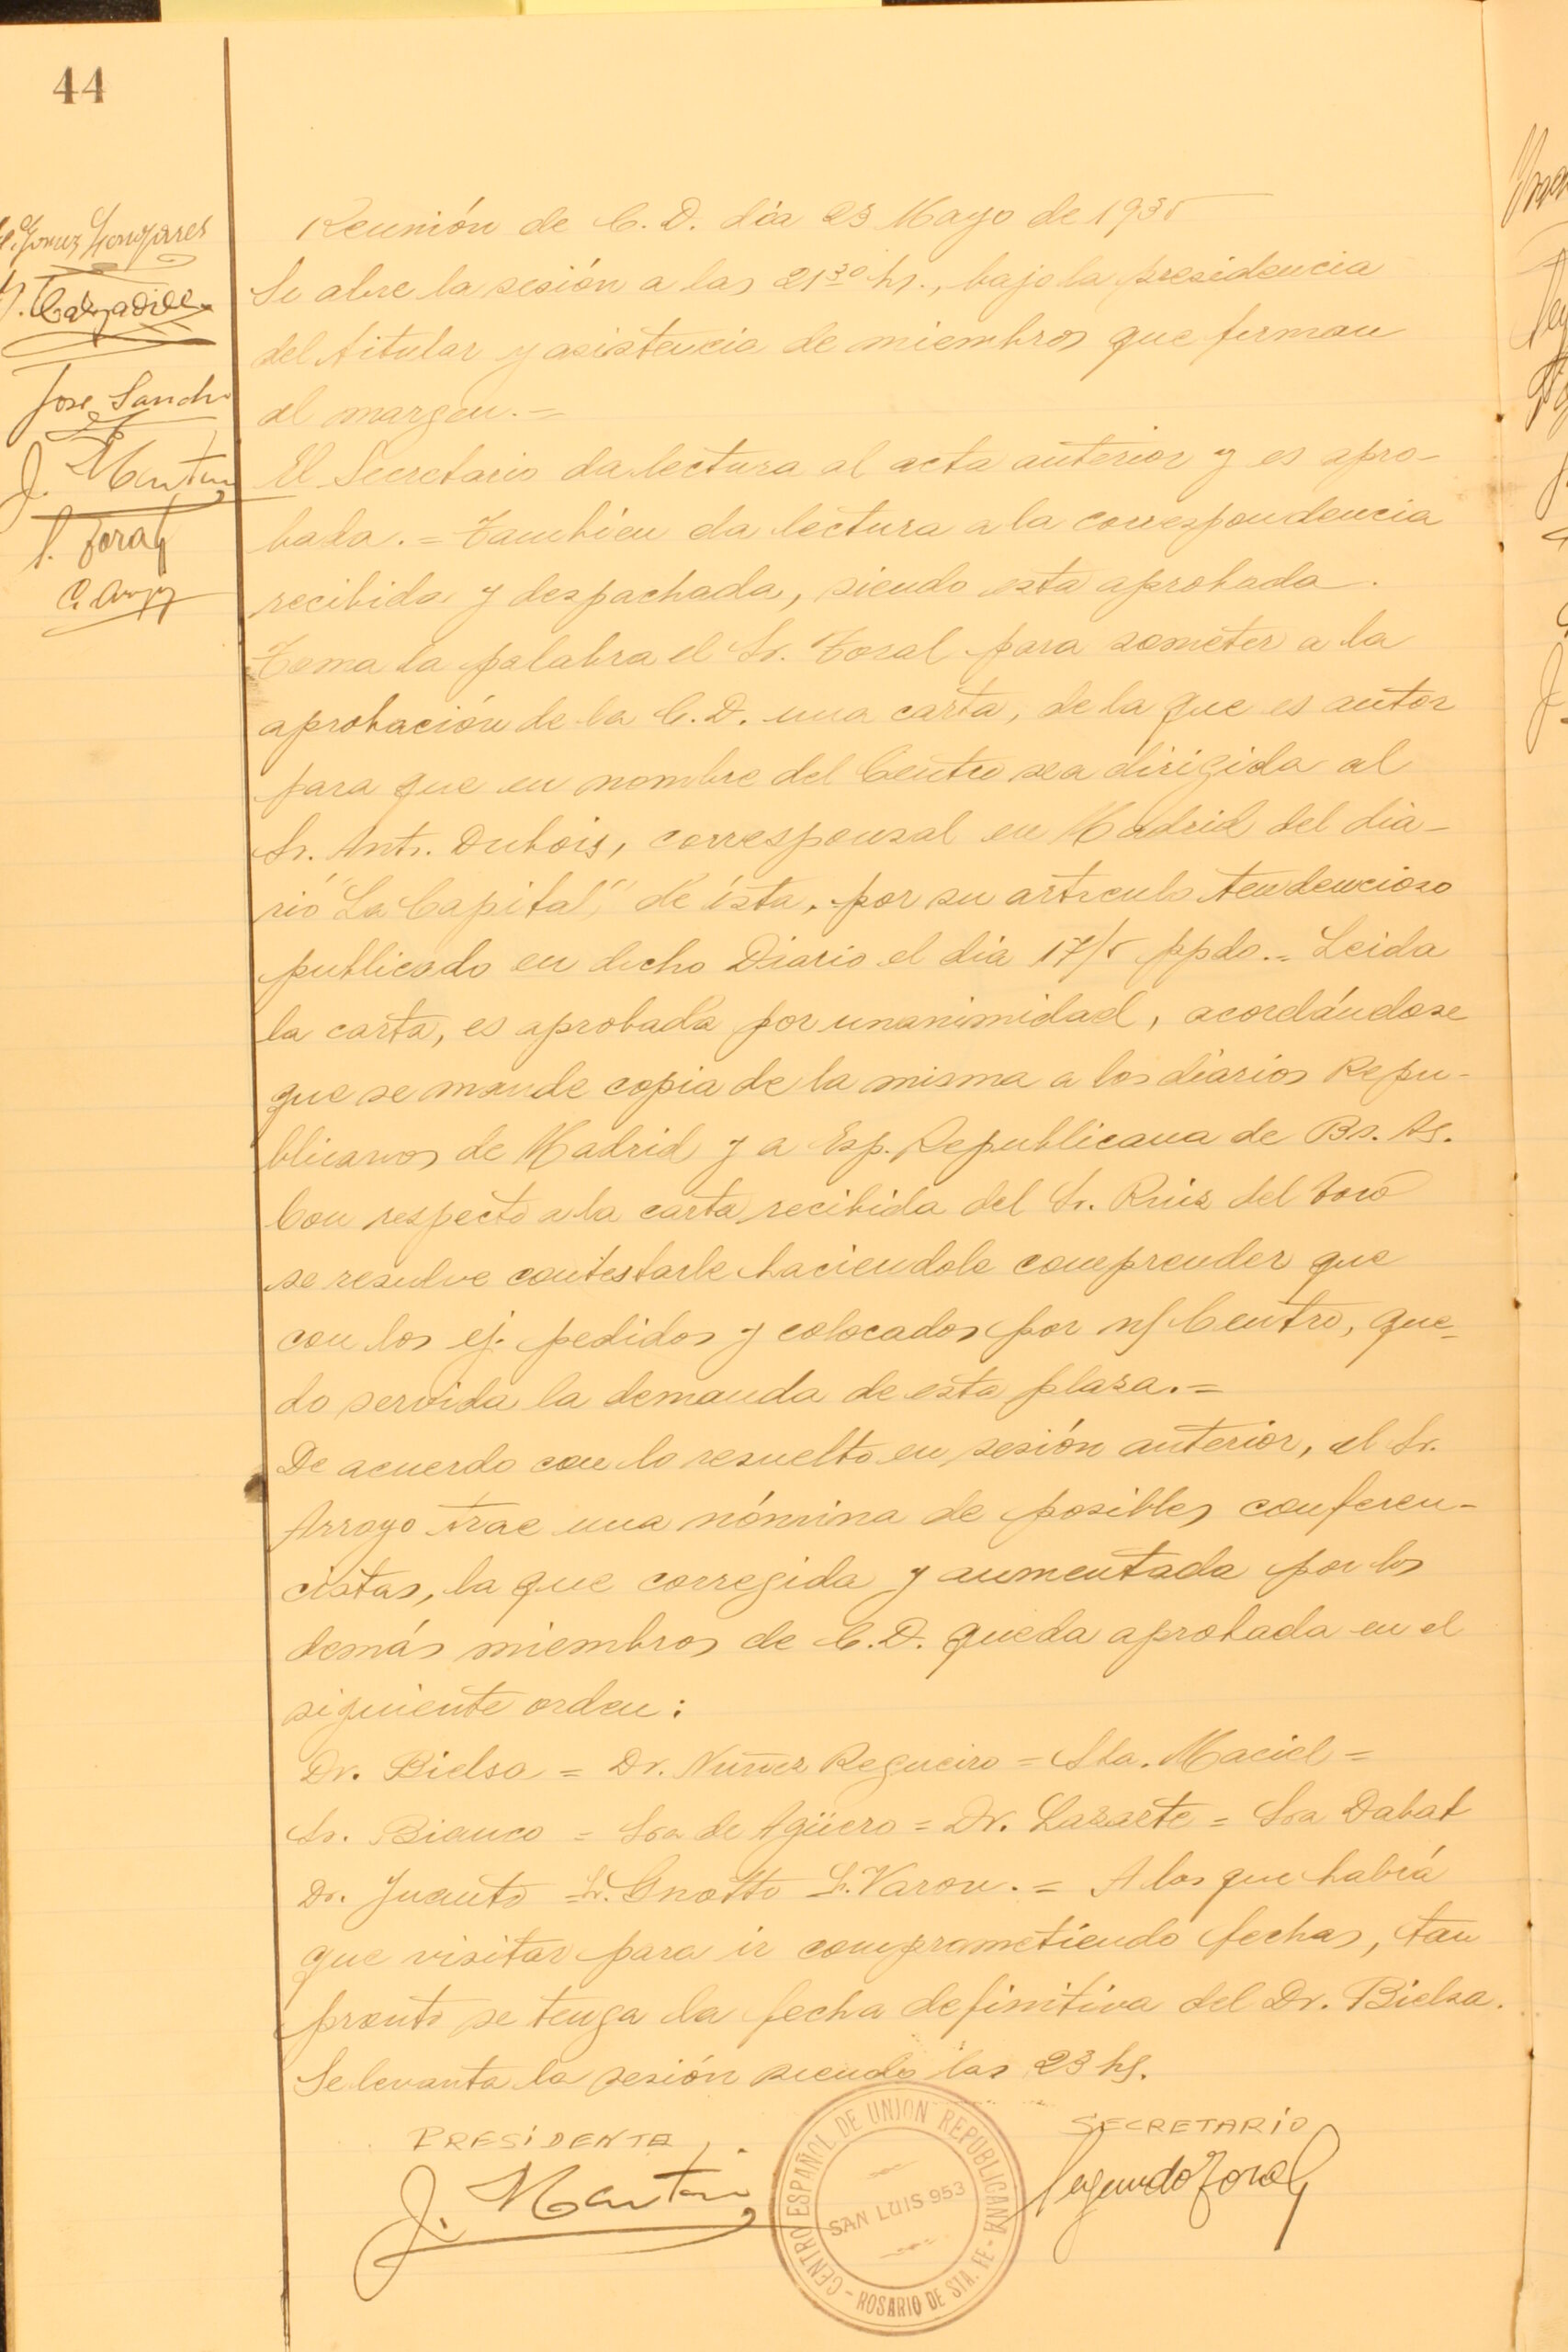 44
Reunión de C. D. día 23 Mayo de 1935
Se abre la sesión a las 21³⁰ hs., bajo la presidencia
del titular y asistencia de miembros que firman
al margen.=
El Secretario da lectura al acta anterior y es apro-
bada.= Tambien da lectura a la correspondencia
recibida y despachada, siendo esta aprobada.
Toma la palabra el Sr. Toral para someter a la
aprobación de la C.D. una carta, de la que es autor
para que en nombre del Centro sea dirigida al
Sr. Anto. Dubois, corresponsal en Madrid del dia-
rio "La Capital" de ésta, por su articulo tendencioso
publicado en dicho Diario el dia 17/5 ppdo.= Leida
la carta, es aprobada por unanimidad, acordándose
que se mande copia de la misma a los diarios Repu-
blicanos de Madrid y a Esp. Republicana de Bs. As.
Con respecto a la carta recibida del Sr. Ruiz del Toro
se resulve contestarle haciendole comprender que
con los ej. pedidos y colocados por n/ Centro, que-
do servida la demanda de esta plaza.=
De acuerdo con lo resuelto en sesión anterior, el Sr.
Arroyo trae una nómina de posibles conferen-
cistas, la que corregida y aumentada por los
demás miembros de C.D. queda aprobada en el
siguiente orden:
Dr. Bielsa = Dr. Nuñez Regueiro = Sta. Maciel =
Sr. Bianco = Sra de Agüero = Dr. Lazarte = Sra Dabat
Dr. Juanto = Sr. Gnotto Sr. Varon.= A los que habrá
que visitar para ir comprometiendo fechas, tan
pronto se tenga la fecha definitiva del Dr. Bielsa.
Se levanta la sesión siendo las 23 hs.
PRESIDENTE
SECRETARIO
J. Martin
Segundo Toral
CENTRO ESPAÑOL DE UNION REPUBLICANA - ROSARIO DE STA. FE -
SAN LUIS 953
Jose Sancho
J. Martin
S. Toral